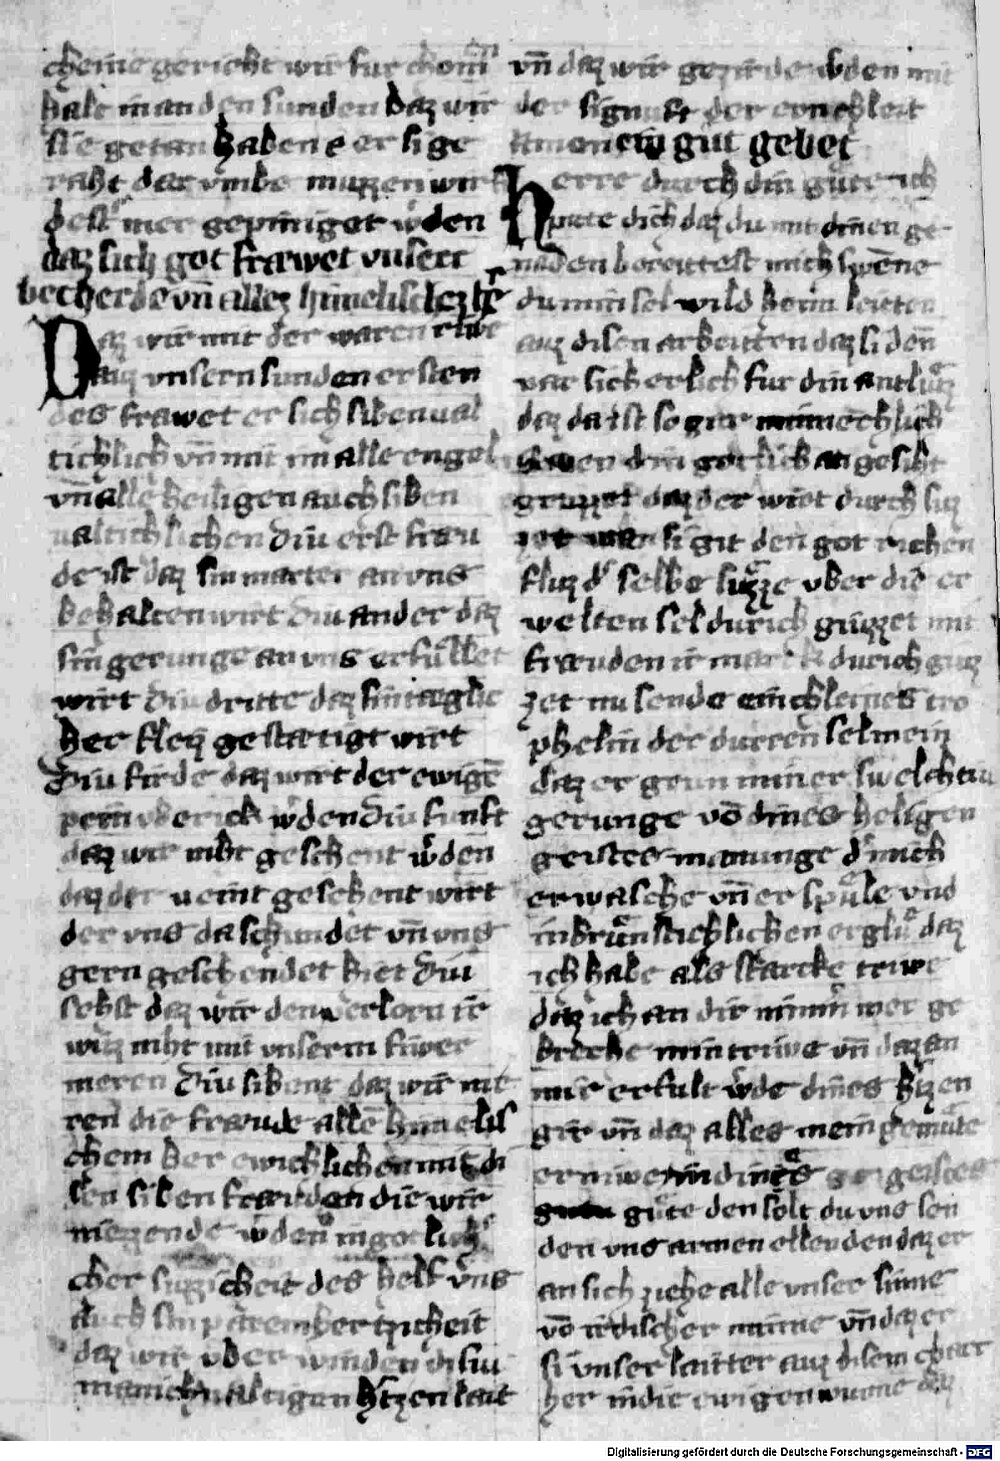 cheine gericht wir fur chom̄en
halt man den sunden daz wir
sie getan haben e er si ge
raht dar vmbe muzzen wir
dest mer gepiniget w̓den
daz sich got frewet vnserr
becherde vn̄ allez himelischez h̓r
Daz wir mit der waren riwe
auz vnsern sunden ersten
des frawet er sich siben ual
tichlich vn̄ mit im alle engel
vn̄ alle heiligen auch siben
ualtichlichen Diu erst frau
de ist daz sin marter an vns
behalten wirt Diu ander daz
sin gerunge an vns erfullet
wirt Diu dritte daz sin tæglic
her fleiz gestætigt wirt
Diu firde daz wirt der ewigē
pein vberick w̓den Diu funft
daz wir niht geschent w̓den
daz der ueint geschent wirt
der vns da schundet vn̄ vns
gern geschendet hiet Diu
sehst daz wir den verlorn ir
wiz niht mit vnserm fiwer
meren Diu sibent daz wir me
ren die fraude allē himelis
chem her ewichlichen mit di
sen siben frauden die wir
niezzende w̓den in gotlich̓
cher suzzicheit des helf vns
durch sin parmhertzicheit
daz wir vber winden disiu
manichualtigen h̓tzen lait
vn̄ daz wir gezirde w̓den mit
der signuft der
Amen ein gut gebet
herre durch din gute ich
pitte dich daz du mit dinen ge
naden bereittest mich swenne
du min sel wild heim leitten
auz disen arbeitten daz si den̄
var sicherlich fur din antlutz
daz da ist so gar minnechlich
din gotlich angesiht
daz der wirt durch suz
zet wan si git den got richen
fluz d̓ selbe suzze vber die er
welten sel durich guzzet mit
frauden ir march durich guz
zet nu sende ein chleines tro
phelin der durren sel mein
daz er geun miner swelch tiu
gerunge vō dines heligen
geistes manunge d̓ mich
erwasche vn̄ er spule vnd
inbrunstichlichen erglu daz
ich habe als starcke triwe
daz ich an dir nimm̓ mer ge
breche min triwe vn̄ daz an
mir erfult w̓de dines h̓tzen
gir vn̄ daz alles mein gemute
erniwe in dines geistes
gute den solt du vns sen
den vns armen ellenden daz er
an sich ziehe alle vnser sinne
vō irdischer minne vn̄ daz er
si vnser laitter auz disem charc
her in die ewigen wunne daz
Digitalisierung gefördert durch die Deutsche Forschungsgemeinschaft - DFG